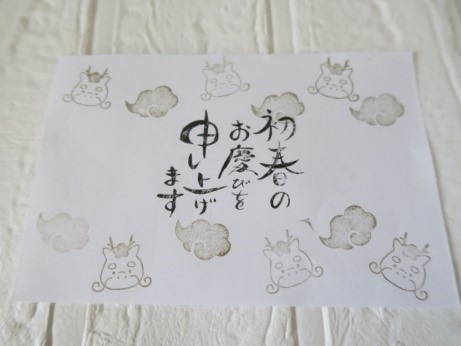 初春の
お慶びを
申し上げ
ます